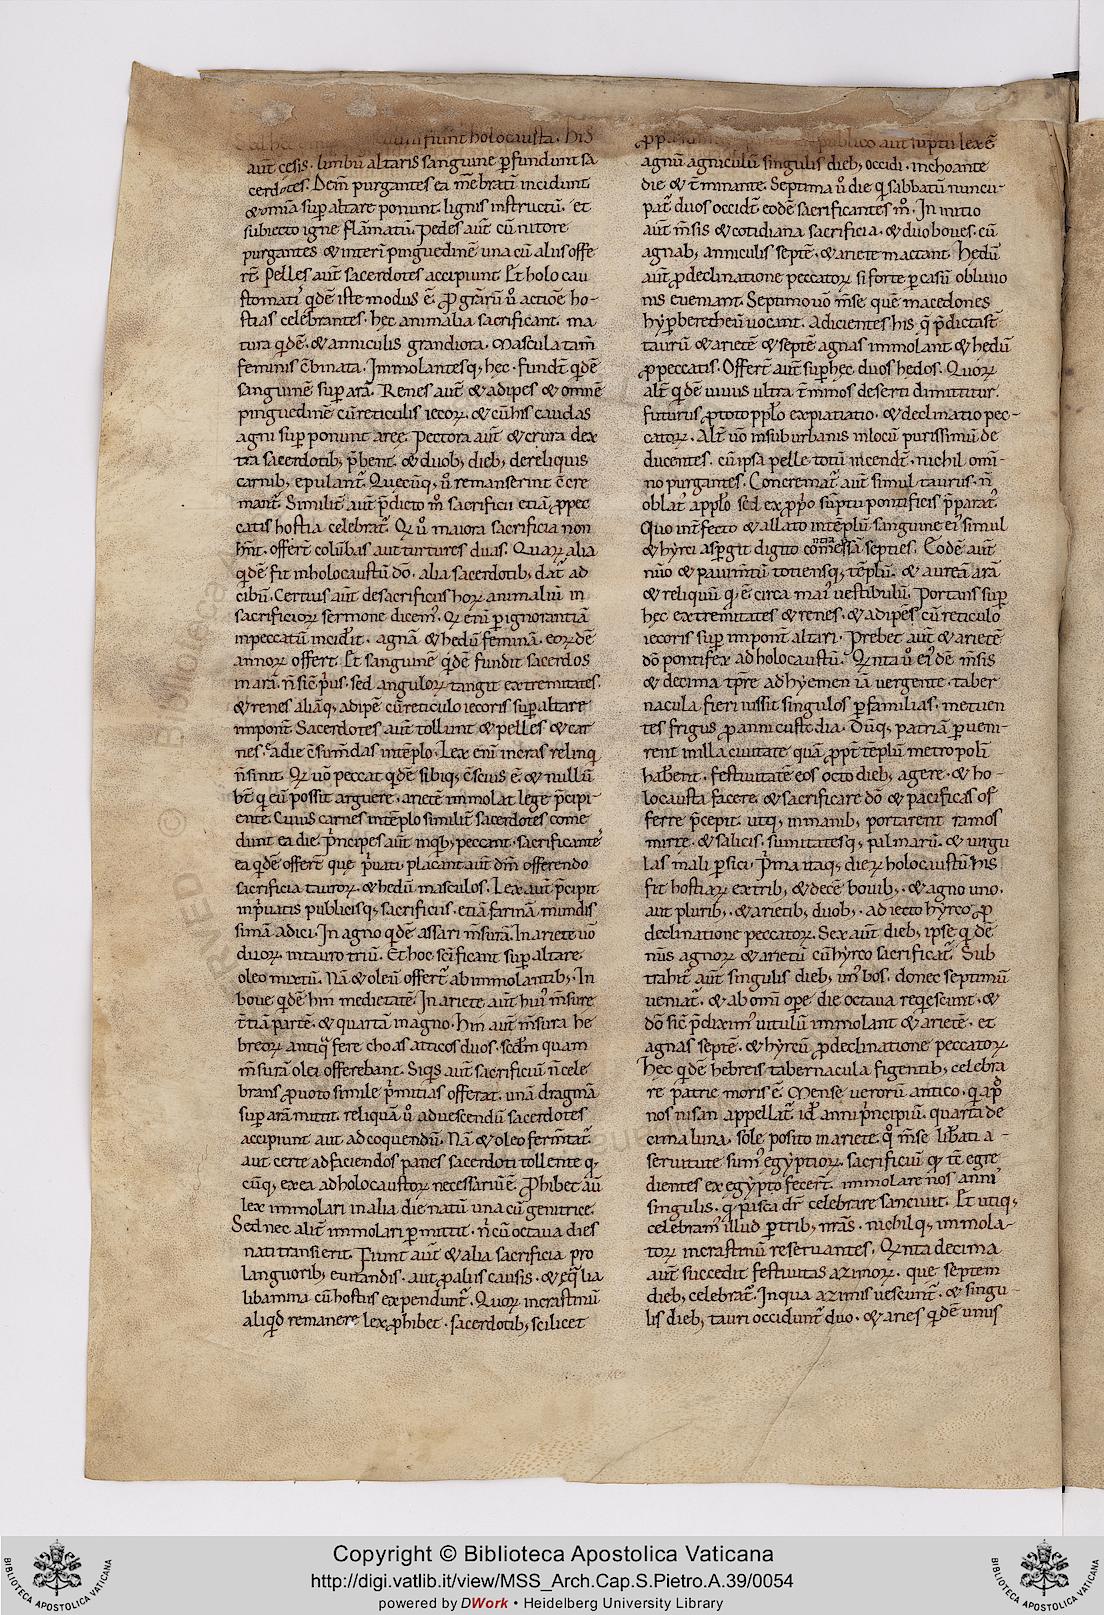 fiunt holocausta. his
aut̄ cęsis. limbū altaris sanguine ꝑfundunt sa
cerdotes. Dem̄ purgantes ea mēbratī incidunt
& om̄ia suꝑ altare ponunt. lignis instructū. et
subiecto igne flāmatū. Pedes aut̄ cū nitore
purgantes & interī pinguedinē una cū aliis offe
rēt. Pelles aut̄ sacerdotes accipiunt. Et holo cau
stomati qdē iste modus ē. ꝓ grarū ů actiōe ho-
stias celebrantes. hęc animalia sacrificant. ma
tura qdē. & anniculis grandiora. Mascula tam̄
feminis cōbinata. Immolantesq; hęc. fundt̄ qdē
sanguinē suꝑ arā. Renes aut̄ & adipes & omnē
pinguedinē cū reticulis iecorꝝ. & cū his caudas
agni suꝑ ponunt aręe. Pectora aut̄ & crura dex
tra sacerdotib; p̄bent. & duob; dieb; de reliquis
carnib; epulant̄. Quecūq; ů remanserint c̄ cre
mant̄. Similit̄ aut̄ p̄dicto m̊ sacrificii etiā ꝓ pec
catis hostia celebrat̄. Qꝝ ů maiora sacrificia non
hn̄t. offert̄ colūbas aut turtures duas. Quarꝝ alia
qdē fit in holocaustū dō. alia sacerdotib; dat̄ ad
cibū. Certius aut̄ de sacrificiis horꝝ animaliū in
sacrificiorꝝ sermone dicem᾽. Qꝝ enī ꝑ ignorantiā
in peccatū incidit. agnā & hedū feminā. eorꝝdē
annorꝝ offert. Et sanguinē qdē fundit sacerdos
in arā. n̄ sic p̄us. sed angulorꝝ tangit extremitates.
& renes aliāq; adipē cū reticulo iecoris suꝑ altare
imponit. Sacerdotes aut̄ tollunt & pelles & car
nes. eadie c̄sum̄das in tēplo. Lex enī in cras relinq
n̄ sinit. Qꝝ uo peccat qdē sibiq; c̄scius ē. & nullū
ht̄ q eū possit arguere. arietē immolat lege p̄cipi-
ente. Cuius carnes in tēplo similit̄ sacerdotes come
dunt ea die. P̄ncipes aut̄ in qb; peccant. sacrificantes
ea qdē offert̄ quę p̄uati. placant aut̄ dm̄ offerendo
sacrificia taurorꝝ. & hedū masculos. Lex aut̄ p̄cipit
in p̄uatis publicisq; sacrificiis. etiā farinā mundis
simā adici. In agno qdē assari m̄surā. In ariete uo
duorꝝ. in tauro triū. Et hoc sc̄ificant suꝑ altare
oleo mixtū. Nā & oleū offert̄ ab immolantib;. In
boue qdē hin medietatē. In ariete aut̄ hui᾽ m̄sure
t̄tiā partē. & quartā in agno. Hin aut̄ m̄sura he
breorꝝ antiq̄ fere choas atticos duos. Scdm̄ quam
m̄surā olei offerebant. Siqs aut̄ sacrificiū n̄ cele
brans ꝓ uoto simile p̄mitias offerat. unā dragmā
suꝑ arā mittit. reliquā ů ad uescendū sacerdotes
accipiunt. aut ad coquendū. Nā & oleo ferm̄tat̄.
aut certe ad faciendos panes sacerdoti tollente q
cūq; ex ea ad holocaustorꝝ necessariū ē. ꝓhibet aū
lex immolari in alia die natū una cū genitrice.
Sed nec alit̄ immolari ꝑmittit. n̄ cū octaua dies
nati transierit. Fiunt aut̄ & alia sacrificia pro
languorib; euitandis. aut ꝓ aliis causis. & ęq̄ lia
libamina cū hostiis expendunt̄. Quorꝝ in crastinū
aliqd remanere lex ꝓhibet. sacerdotib; scilicet
publico aut sūptu lex ē
agnū agniculū singulis dieb; occidi. inchoante
die & t̄minante. Septima ů die q sabbatū nuncu-
pat̄ duos occidt̄ eodē sacrificantes m̊. In initio
aut̄ m̄sis & cotidiana sacrificia. & duo boues. cū
agnab; anniculis septē. & ariete mactant. Hedū
aut̄ ꝓ declinatione peccatorꝝ si forte ꝑ casū obliuio
nis eueniant. Septimo uo m̄se quē macedones
hyꝑberetheū uocant. Adicientes his q p̄dicta st̄
taurū & arietē & septē agnas immolant & hedū
ꝓ peccatis. Offert̄ aut̄ suꝑ hęc duos hedos. Quorꝝ
alt̄ qdē uiuus ultra t̄minos deserti dimittitur.
futurus ꝓ toto pplo expiatiatio. & declinatio pec-
catorꝝ. Alt̄ uo in suburbanis in locū purissimū de
ducentes. cū ipsa pelle totū incendt̄. nichil omī-
no purgantes. Concremat̄ aut̄ simul taurus. n̄
oblat᾽ a pplo sed ex ꝓp̄o sūptu pontificis p̄parat᾽.
Quo int̄fecto & allato in tēplū sanguine ei᾽ simul
& hyrci asꝑgit digito septies. Eodē aut̄
nůo & pauim̄tū totiensq; tēplū. & aureā arā
& reliquū q ē circa mai᾽ uestibulū. Portans suꝑ
hęc extremitates & renes. & adipes cū reticulo
iecoris suꝑ imponit altari. Prebet aut̄ & arietē
dō pontifex ad holocaustū. Qꝝnta ů ei᾽dē m̄sis
& decima tp̄re ad hyemen iā uergente. taber
nacula fieri iussit singulos ꝑ familias. metuen
tes frigus ꝓ anni custodia. Dūq; patriā ꝑueni-
rent in illa ciuitate quā ꝓpt̄ tēplū metropolī
haberent. festiuitatē eos octo dieb; agere. & ho-
locausta facere. & sacrificare dō & pacificas of
ferre p̄cepit. utq; in manib; portarent ramos
mirte. & salicis. sumitatesq; palmarū. & uirgu
las mali ꝑsici. P̄ma itaq; dierꝝ holocaustū his
fit hostiarꝝ ex trib; & decē bouib;. & agno uno.
aut plurib;. & arietib; duob;. adiecto hyrco ꝓ
declinatione peccatorꝝ. Sex aut̄ dieb; ipse q dē
nůs agnorꝝ & arietū cū hyrco sacrificat̄. Sub
trahit̄ aut̄ singulis dieb; un᾽ bos. donec septimū
ueniat̄. & ab omī oꝑe die octaua reqescunt. &
dō sic p̄dixim᾽ uitulū immolant & arietē. et
agnas septē. & hyrcū ꝓ declinatione peccatorꝝ.
Hęc qdē hebreis tabernacula figentib; celebra
re patrie moris ē. Mense uerorū antico. q apd
nos nisan appellat̄. id ē anni p̄ncipiū. quarta de
cima luna. sole posito in ariete. q̊ m̄se libati a-
seruitute sum᾽ egyptiorꝝ. sacrificiū q tē egre
dientes ex egypto fecert̄. immolare nos anni᾽
singulis. q pasca dr̄ celebrare sanciuit. Et utiq;
celebram᾽ illud ꝑ trib; nr̄as. nichilq; immola-
torꝝ in crastinū reseruantes. Qꝝnta decima
aut̄ succedit festiuitas azimorꝝ. que septem
dieb; celebrat̄. In qua azimis uescunt̄. & singu-
lis dieb; tauri occidunt̄ duo. & aries qdē unus
Copyright © Biblioteca Apostolica Vaticana
http://digi.vatlib.it/view/MSS_Arch.Cap.S.Pietro.A.39/0054
powered by DWork • Heidelberg University Library
BIBLIOTECA APOSTOLICA VATICANA
BIBLIOTECA APOSTOLICA VATICANA